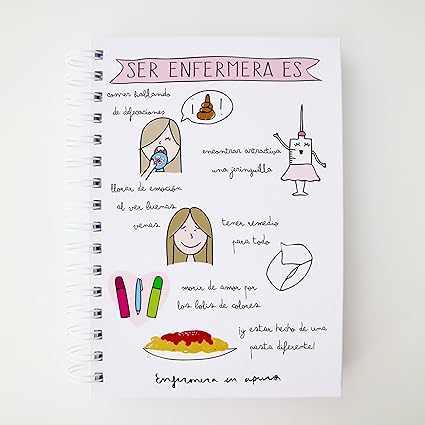 SER ENFERMERA ES
comer hablando
de defecaciones
encontrar atractiva
una jeringuilla
llorar de emoción
al ver buenas
venas
tener remedio
para todo
morir de amor por
los bolis de colores
¡y estar hecho de una
pasta diferente!
Enfermera en apuros